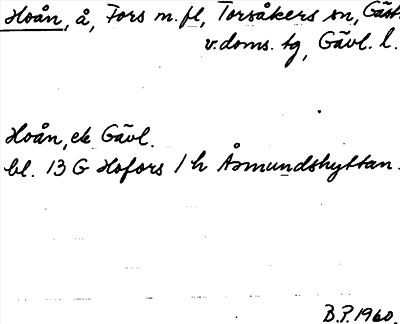 Hoån, å, Fors m. fl, Torsåkers sn, Gästr.
v. doms. tg, Gävl. l.
Hoån, ek Gävl.
bl. 13 G Hofors 1 h Åsmundshyttan.
B.P. 1960.